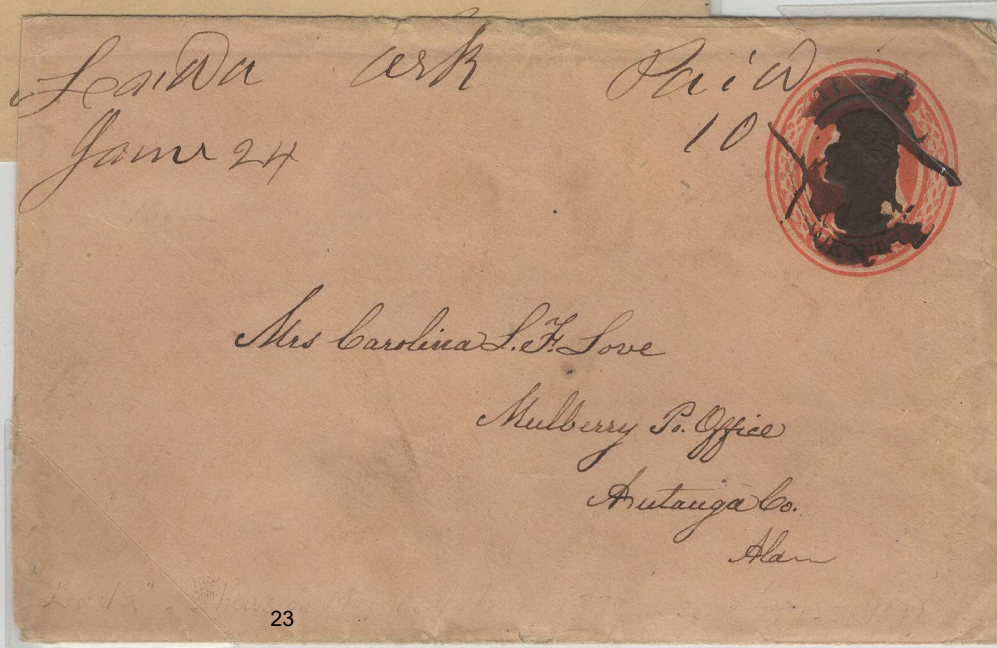 Laida Ark Paid
Jany 24 10
THREE
CENTS
Mrs Carolina L. F. Love
Mulberry Po. Office
Autauga Co.
Alam
23